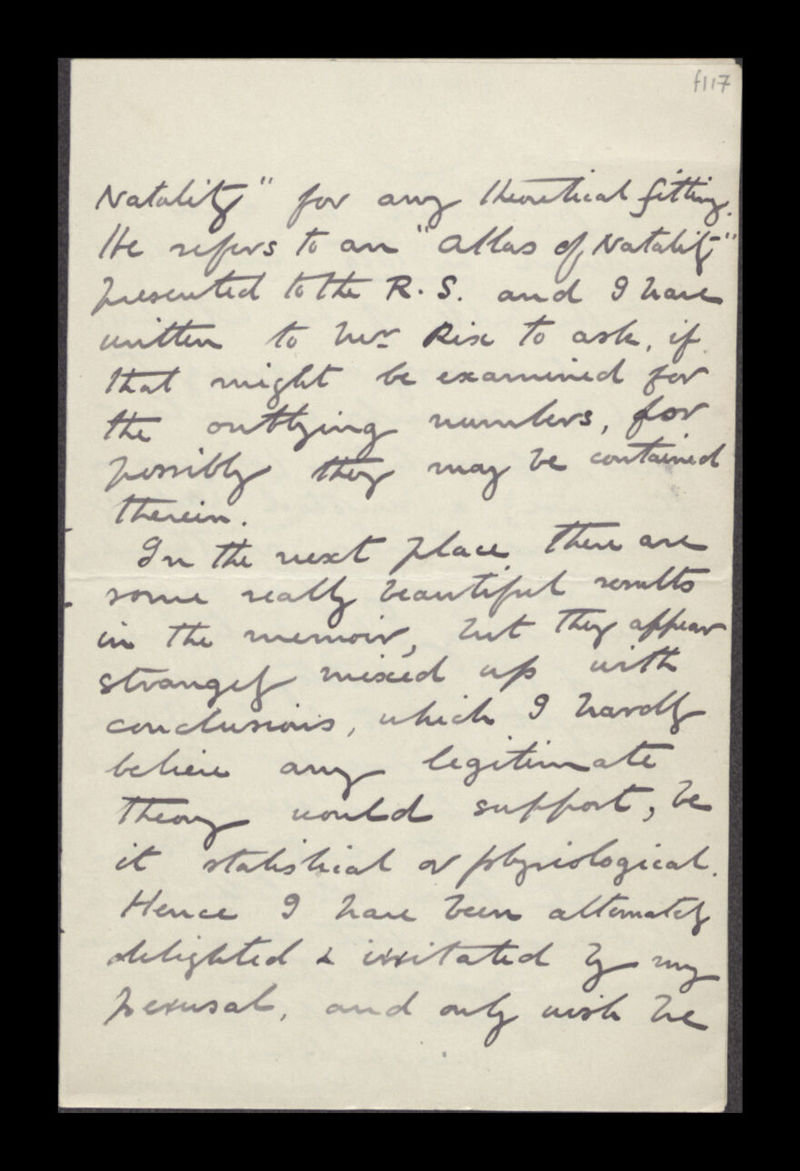 f117
Natality" for any theoretical fitting.
He refers to an "Atlas of Natality"
presented to the R.S. and I have
written to Mr Rix to ask, if
that might be examined for
the outlying numbers, for
possibly they may be contained
therein.
In the next place there are
some really beautiful results
in the memoir, but they appear
strangely mixed up with
conclusions, which I hardly
believe any legitimate
theory would support, be
it statistical or physiological.
Hence I have been alternately
delighted & irritated by my
perusal, and only wish he